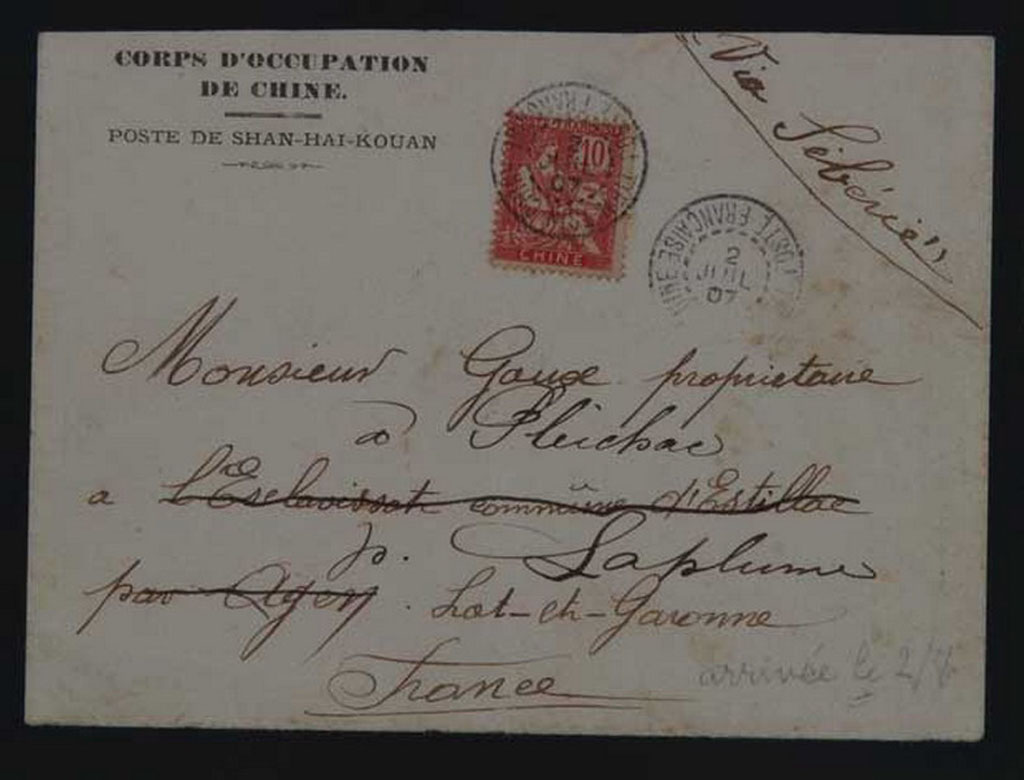 CORPS D'OCCUPATION
DE CHINE.
POSTE DE SHAN-HAI-KOUAN
"Via Sibérie"
10
CHINE
POSTE FRANÇAISE
2
JUIL
07
Monsieur Goux propriétaire
à Pleichac
a l'Esclavissat commune d'Estillac
p. Laplume
par Agen. Lot-et-Garonne
France
arrivée le 2/